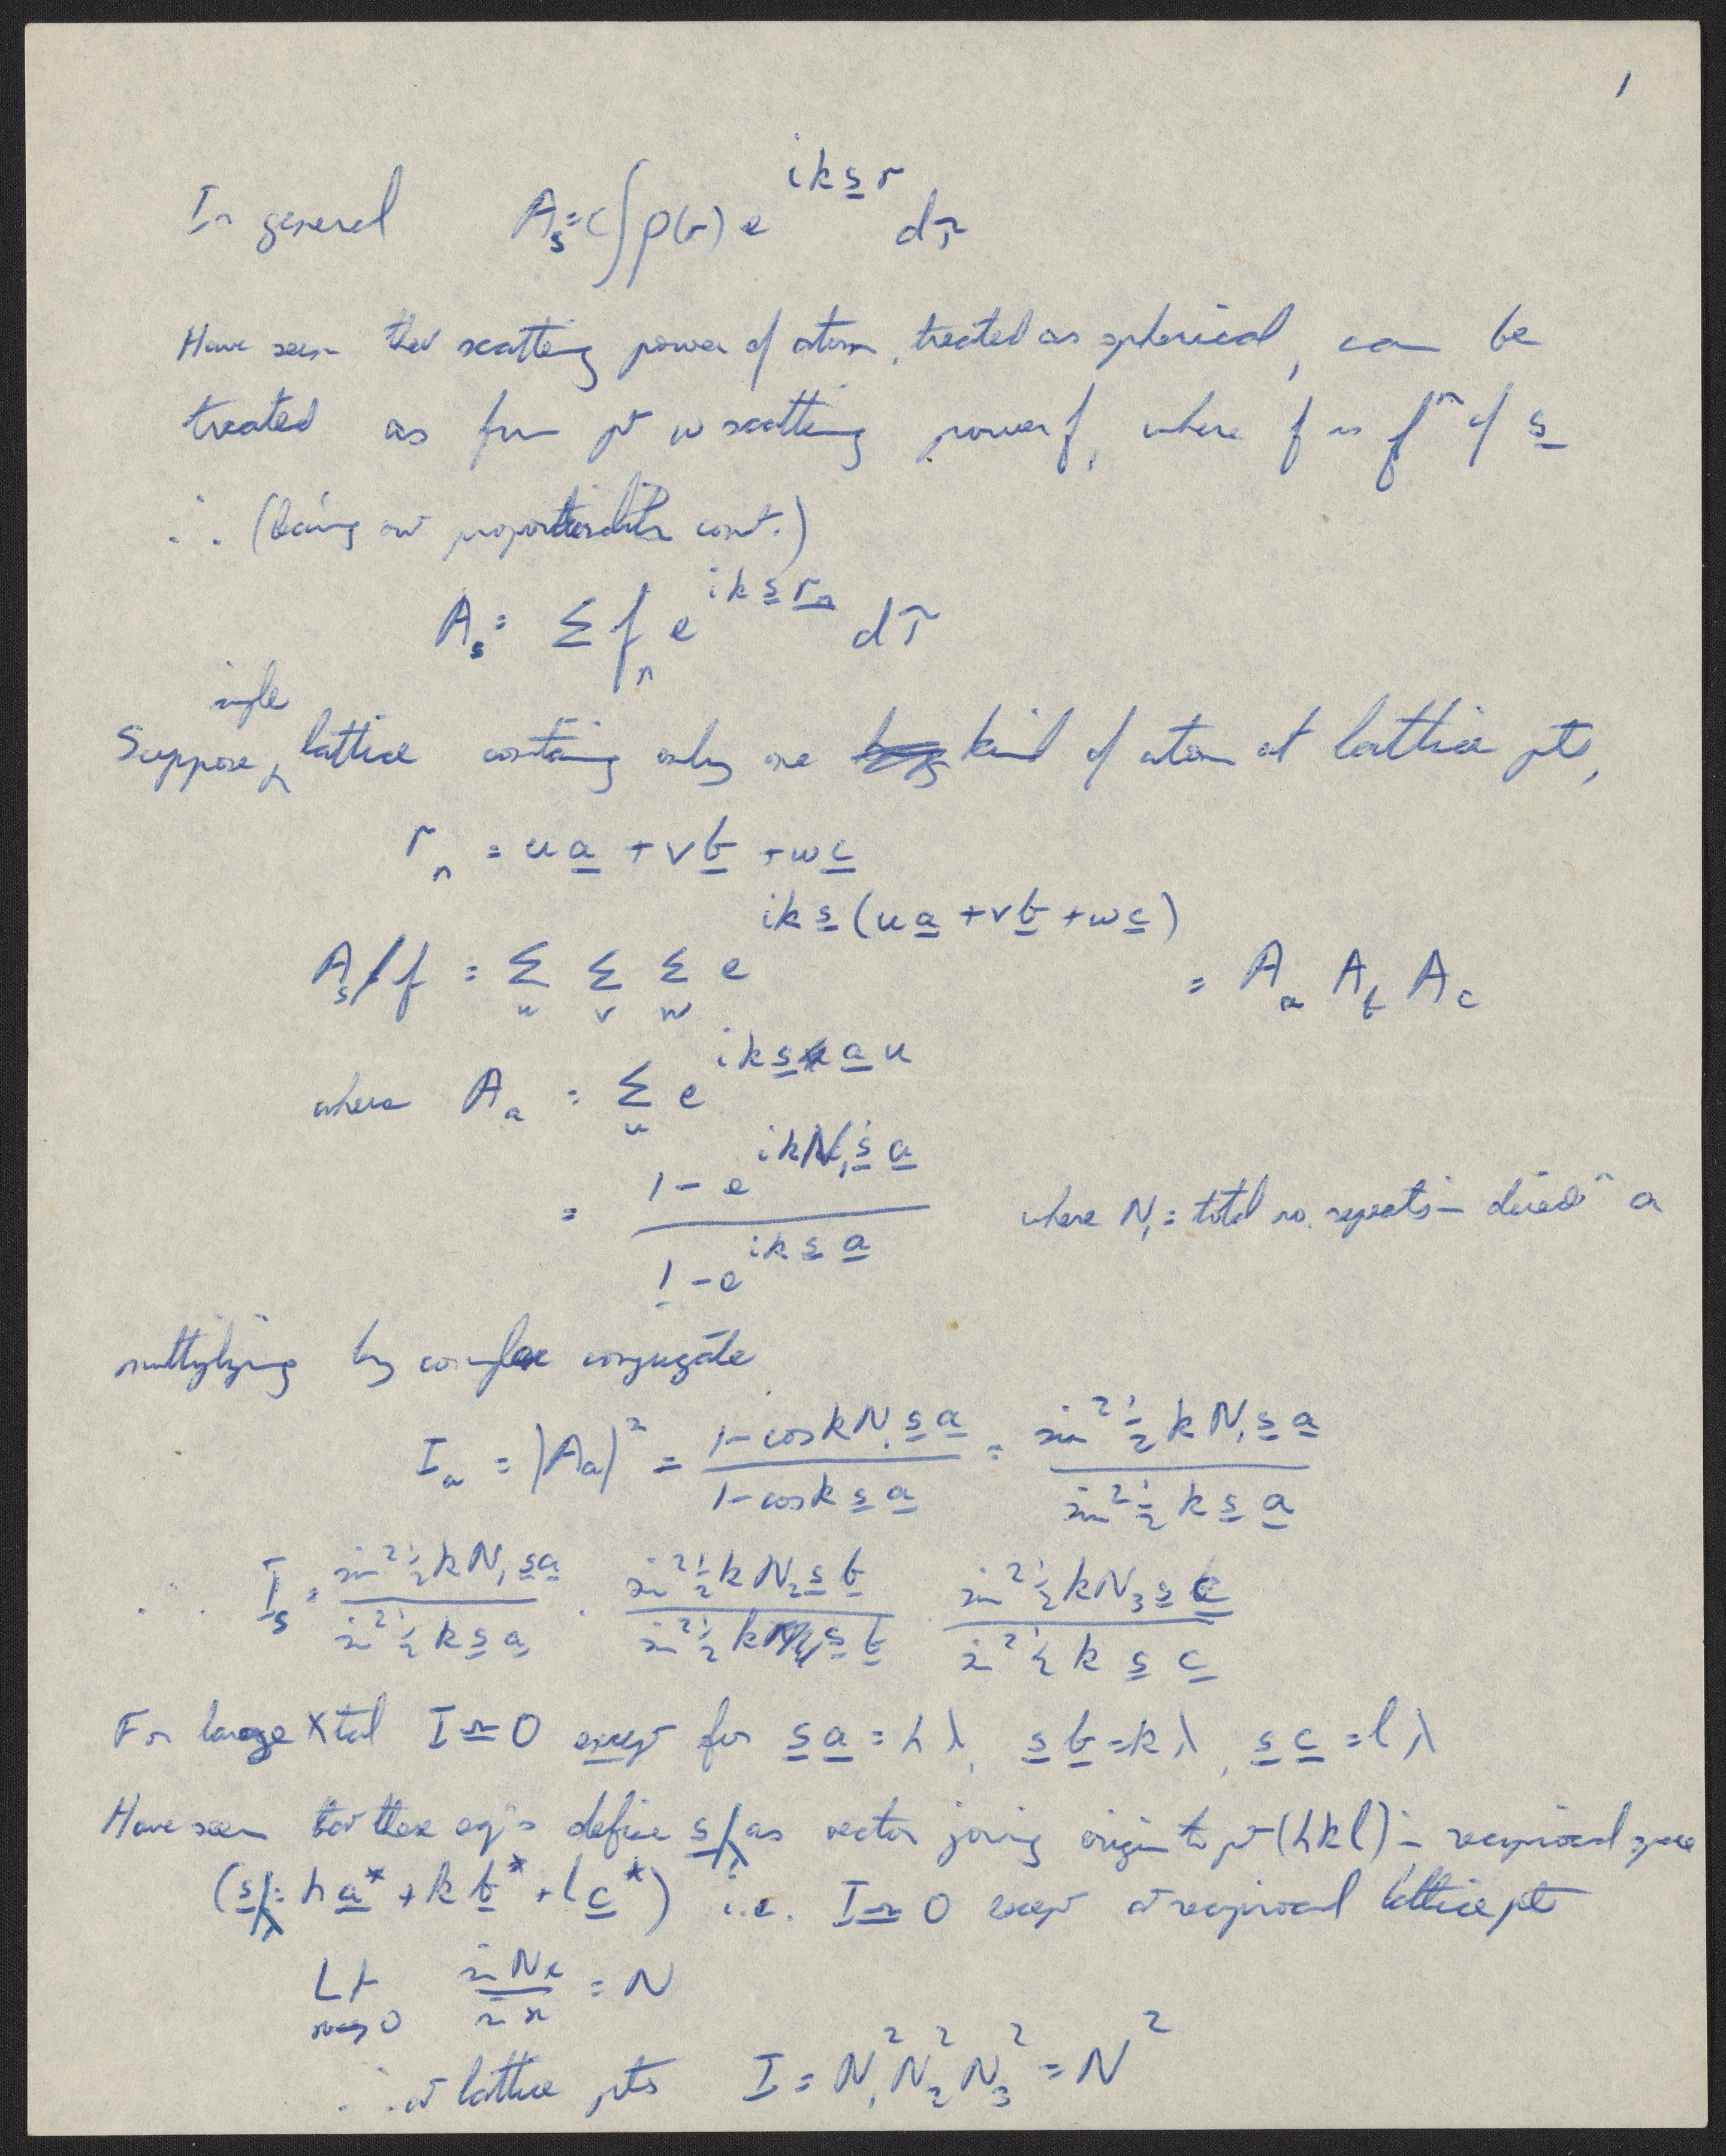 1
In general A_s = c ∫ρ(r) e^{ik s r} dτ
Have seen that scatting power of atom, treated as spherical, can be
treated as from pt w scatting power f, where f is fⁿ of s
∴ (leaving out proportionality const.)
A_s = Σ f_n e^{ik s r_n} dτ
single
Suppose ‸ lattice containing only one kind of atom at lattice pts,
r_n = u a + v b + w c
A_s/f = Σ_u Σ_v Σ_w e^{ik s (u a + v b + w c)} = A_a A_b A_c
where A_a = Σ_u e^{ik s a u}
= (1 - e^{ikN₁ s a}) / (1 - e^{ik s a}) where N₁ = total no. repeats in directⁿ a
multiplying by complex conjugate
I_a = |A_a|² = (1 - cos kN₁ s a) / (1 - cos k s a) = (sin² ½ kN₁ s a) / (sin² ½ k s a)
∴ I_s = (sin² ½ kN₁ s a) / (sin² ½ k s a) . (sin² ½ kN₂ s b) / (sin² ½ k s b) . (sin² ½ kN₃ s c) / (sin² ½ k s c)
For large Xtal I ≃ 0 except for s a = hλ, s b = kλ, s c = lλ
Have seen that these eqⁿs define s/λ as vector joining origin to pt (hkl) in reciprocal space
(s/λ = h a* + k b* + l c*) i.e. I ≃ 0 except at reciprocal lattice pts
Lt x→0 (sin Nx) / (sin x) = N
∴ at lattice pts I = N₁² N₂² N₃² = N²